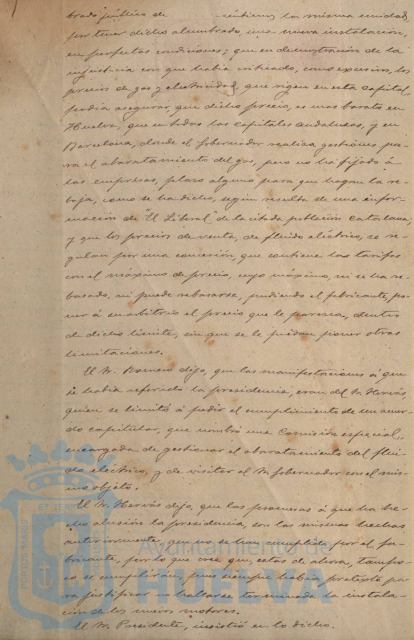 trado público de continue la misma unidad,
por tener dicho alumbrado, una nueva instalación,
en perfectas condiciones; que en demostración de la
injusticia con que había criticado, como excesivos, los
precios de gas y electricidad, que rigen en esta capital,
podía asegurar, que dicho precio, es mas barato en
Huelva, que en todas las capitales andaluzas, y en
Barcelona, donde el Gobernador realiza gestiones pa-
ra el abaratamiento del gas, pero no ha fijado á
las empresas, plazo alguno para que hagan la re-
baja, como se ha dicho, segun resulta de una infor-
mación de El Liberal de la citada población Catalana;
y que los precios de venta, de fluido eléctrico, se re-
gulan por una concesión, que contiene las tarifas
con el máximo de precio, cuyo máximo, ni se ha re-
basado, ni puede rebasarse, pudiendo el fabricante, po-
ner á su arbitrio el precio que le parezca, dentro
de dicho límite, sin que se le puedan poner otras
limitaciones.
El Sr. Romero dijo, que las manifestaciones á que
se había referido la presidencia, eran del Sr. Hervás,
quien se limitó á pedir el cumplimiento de un acuer-
do capitular, que nombró una Comisión especial,
encargada de gestionar el abaratamiento del flui-
do eléctrico, y de visitar al Sr. Gobernador con el mis-
mo objeto.
El Sr. Hervás dijo, que las promesas á que ha he-
cho alusión la presidencia, son las mismas hechas
anteriormente, que no se han cumplido por el fa-
bricante, por lo que cree que, estas de ahora, tampo-
co se cumplirán, pues siempre habrá pretexto pa-
ra justificar no hallarse terminada la instala-
ción de los nuevos motores.
El Sr. Presidente, insistió en lo dicho.
Ayuntamiento de